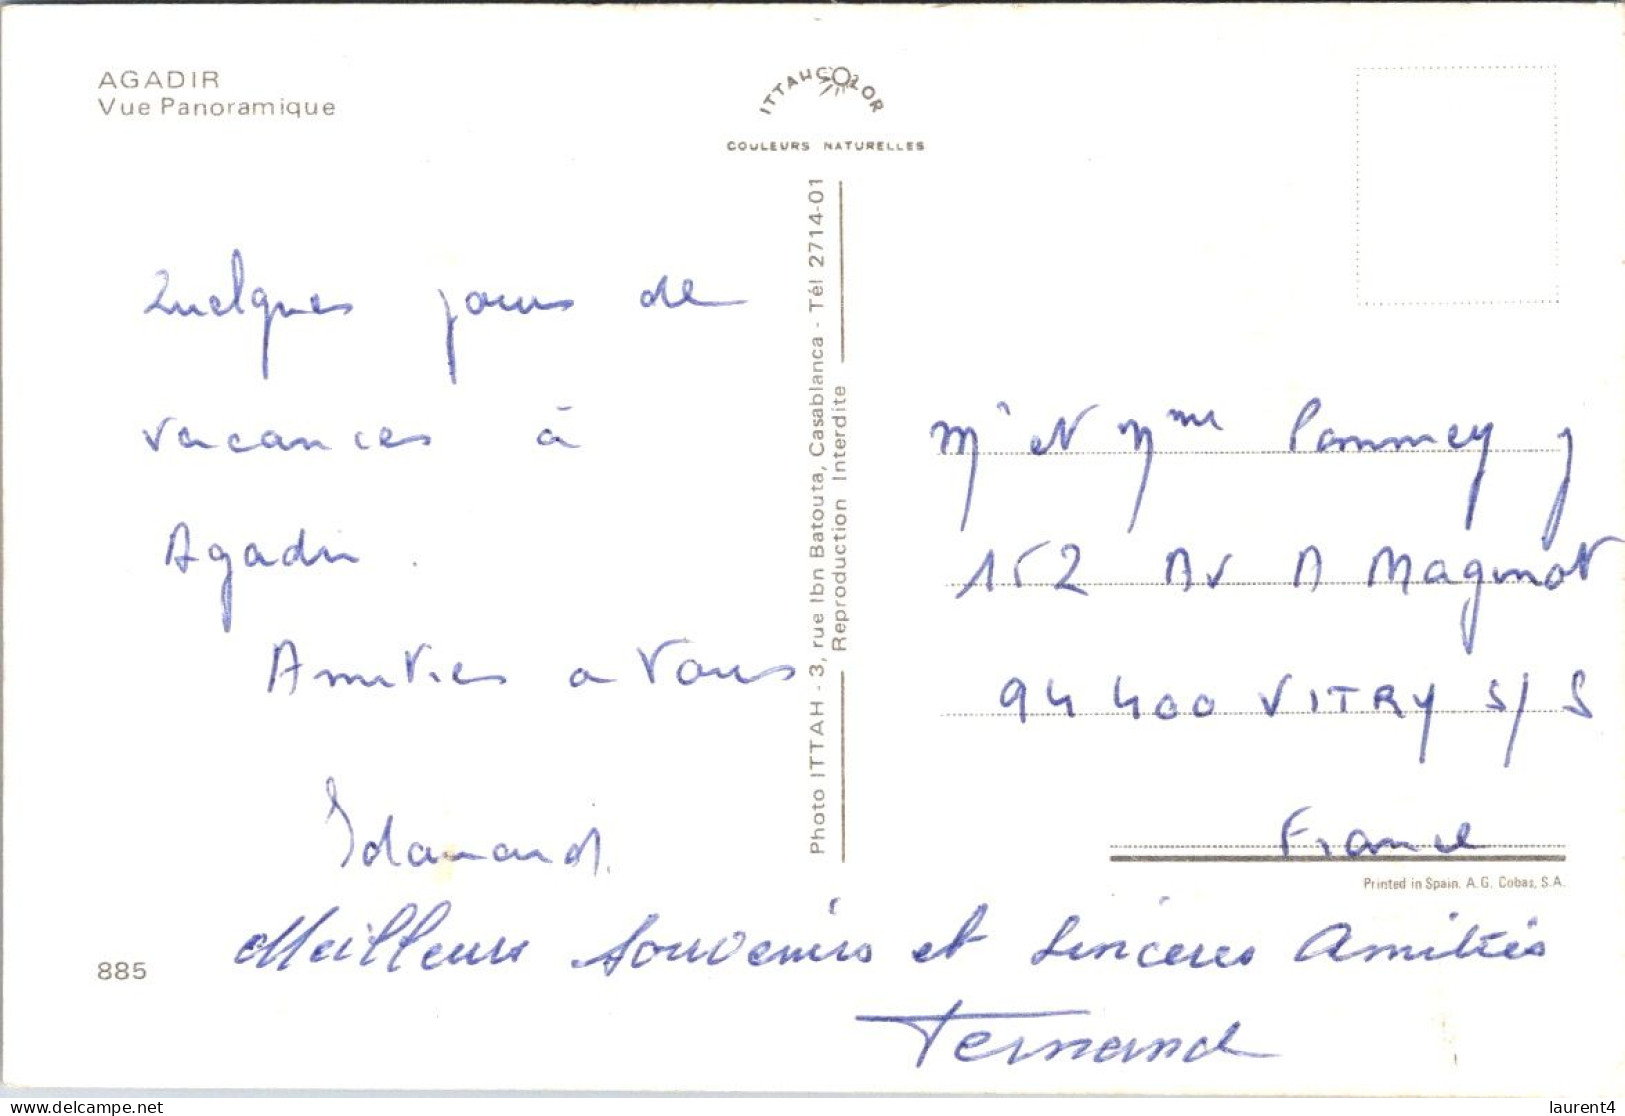 AGADIR
Vue Panoramique
ITTAHCOLOR
COULEURS NATURELLES
Quelques jours de
vacances à
Agadir.
Amitiés a vous
Photo ITTAH - 3, rue Ibn Batouta, Casablanca - Tél 2714-01
Reproduction Interdite
Mr et Mme Pommey J
152 Av A Maginot
94 400 VITRY S/S
France
Printed in Spain. A.G. Cobas, S.A.
Meilleurs souvenirs et sincères Amitiés
Fernand
885
delcampe.net
laurent4